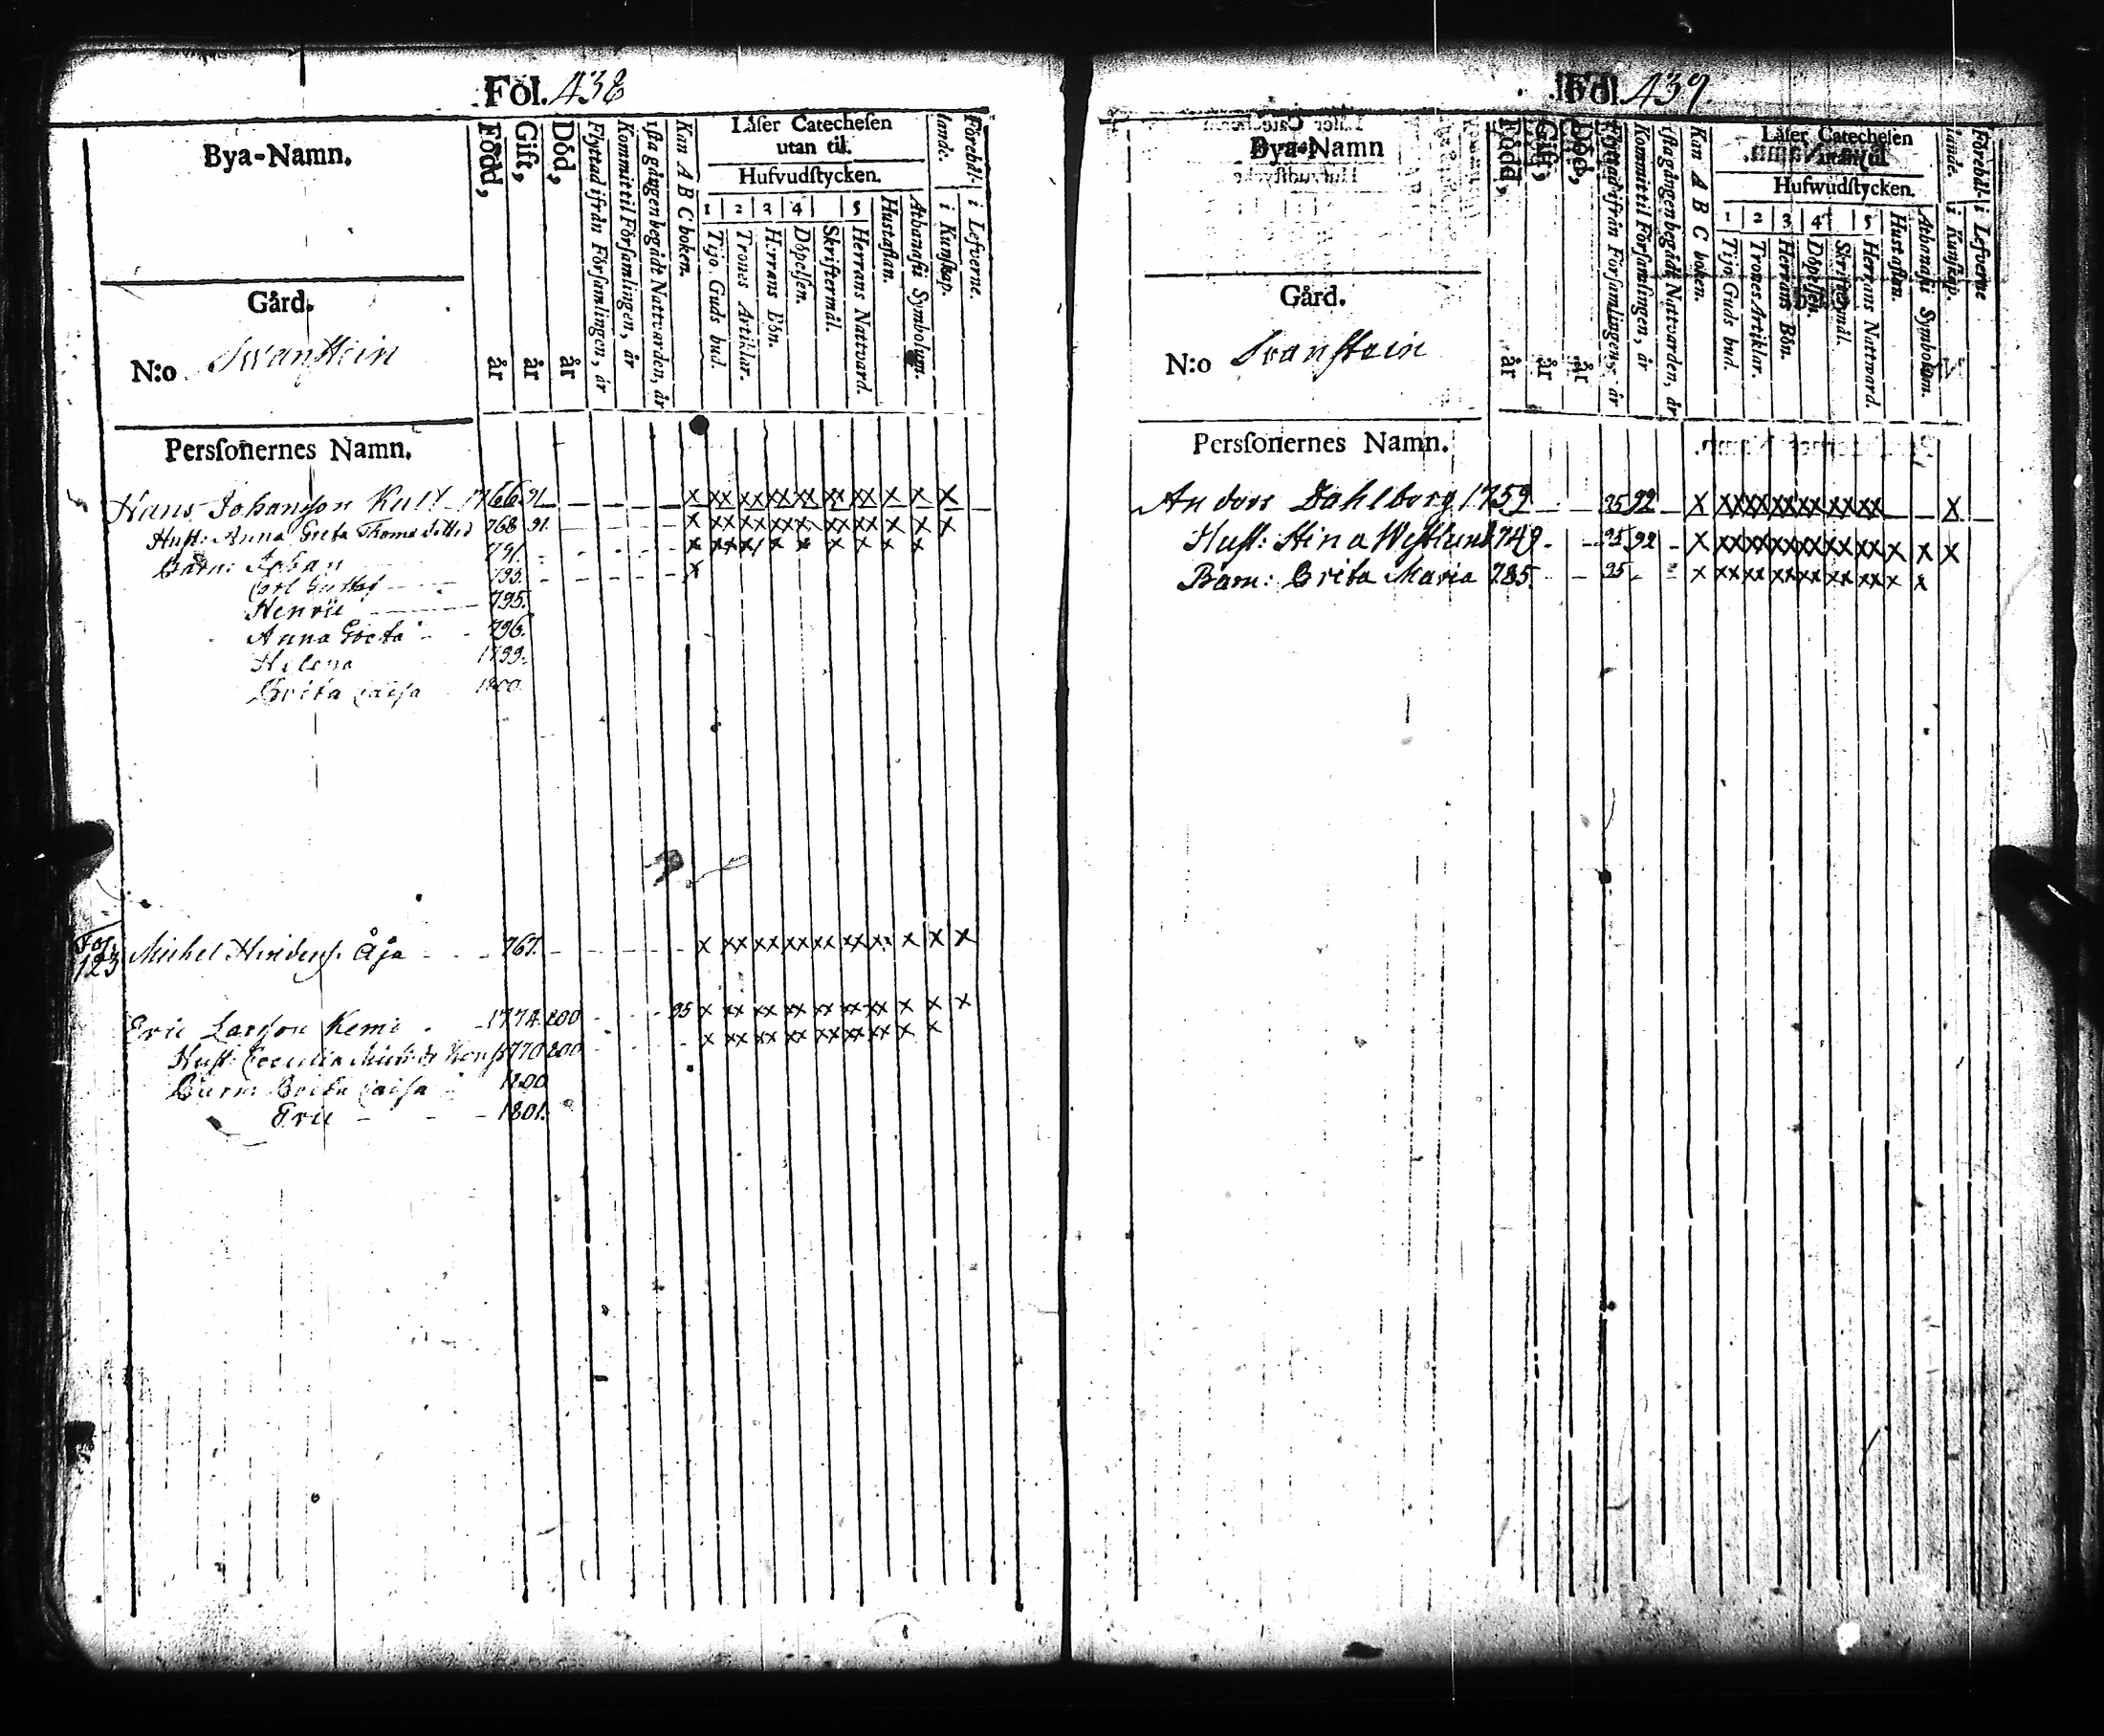 Fol. 438
Bya-Namn.
Född, år
Gift, år
Död, år
Flyttad ifrån Förſamlingen, år
Kommit til Förſamlingen, år
1ſta gången begådt Nattvarden, år
Kan A B C boken.
Låſer Catecheſen
utan til.
Hufvudſtycken.
1 2 3 4 5
Tijo Guds bud.
Trones Artiklar.
Herrans Bön.
Döpelſen.
Skriftermål.
Herrans Nattvard.
Hustaflan.
Athanaſii Symbolum.
Förehål-
lande.
i Kunſkap.
i Lefverne.
Gård.
N:o Swanstein
Perſonernes Namn.
Hans Johansson 1766. 91. x xx xx xx xx xx xx x x x
Hust: Anna Greta Thomæ dotter 768 91. x xx xx xx xx xx x x x
Barn: Johan 791. x
Carl Gustaf 793. x
Henric 795.
Anna Greta 796.
Helena 1799.
Brita Caisa 1800.
Fol.
123
Michel Hindersſ. Äja 767. x xx xx xx xx xx x x x
Eric Larsson Kemi 1774. 800 95 x xx xx xx xx xx xx x x x
Hust: Cecilia 1770 800 x xx xx xx xx xx xx x x
Barn: Brita Caisa 1800
Eric 1801.
Fol. 439.
Bya-Namn
Född, år
Gift, år
Död, år
Flyttad ifrån Förſamlingen, år
Kommit til Förſamlingen, år
1ſta gången begådt Nattvarden, år
Kan A B C boken.
Låſer Catecheſen
utan til.
Hufwudſtycken.
1 2 3 4 5
Tijo Guds bud.
Trones Artiklar.
Herrans Bön.
Döpelſen.
Skriftermål.
Herrans Nattward.
Hustaflan.
Athanaſii Symbolum.
Förehål-
lande.
i Kunſkap.
i Lefverne
Gård.
N:o Svanstein
Perſonernes Namn.
Anders Dahlberg 1759. 95 92 x xx xx xx xx xx xx x
Hust: Stina Westlund 749. 95 92 x xx xx xx xx xx xx x x x
Barn: Brita Maria 785. 95 x xx xx xx xx xx xx x x